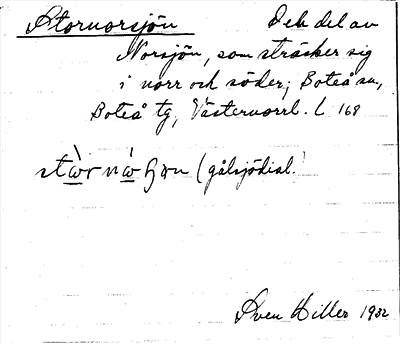 Stornorsjön Den del av
Norsjön, som sträcker sig
i norr och söder; Boteå sn,
Boteå tg, Västernorrl. L 168
(gålsjödial.
Sven Hiller 1932